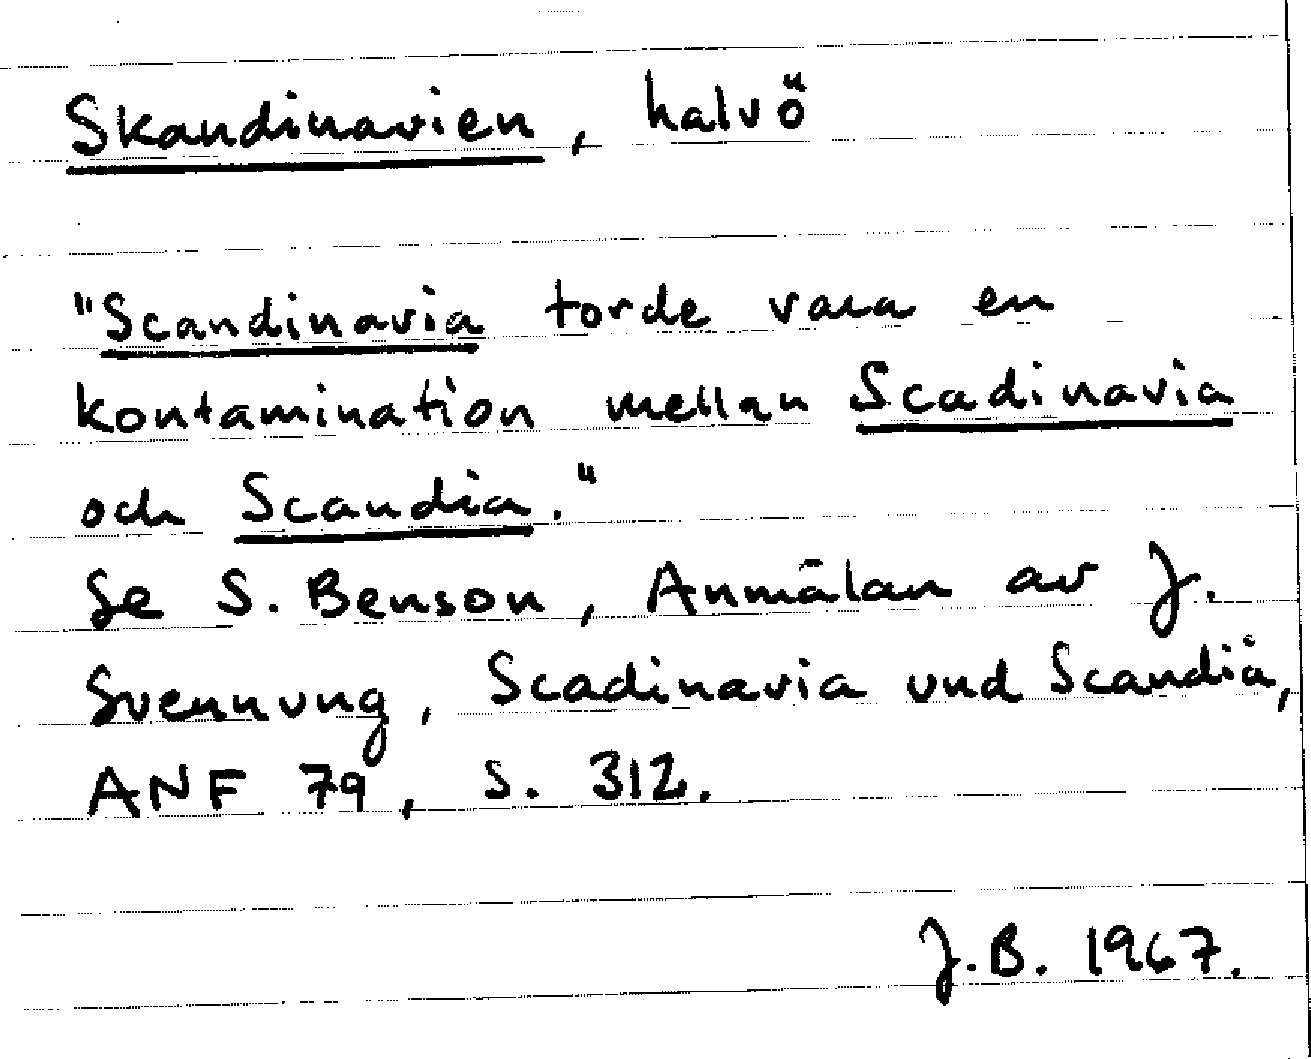 Skandinavien, halvö
"Scandinavia torde vara en
kontamination mellan Scadinavia
och Scandia."
Se S. Benson, Anmälan av J.
Svennung, Scadinavia und Scandia,
ANF 79, s. 312.
J.B. 1967.